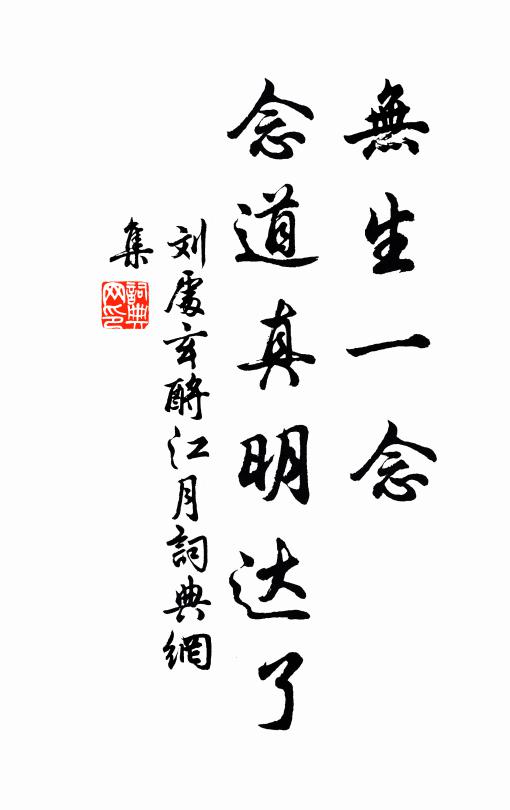 無生一念
念道真明达了
刘處玄酹江月詞典網
集
詞典
网印